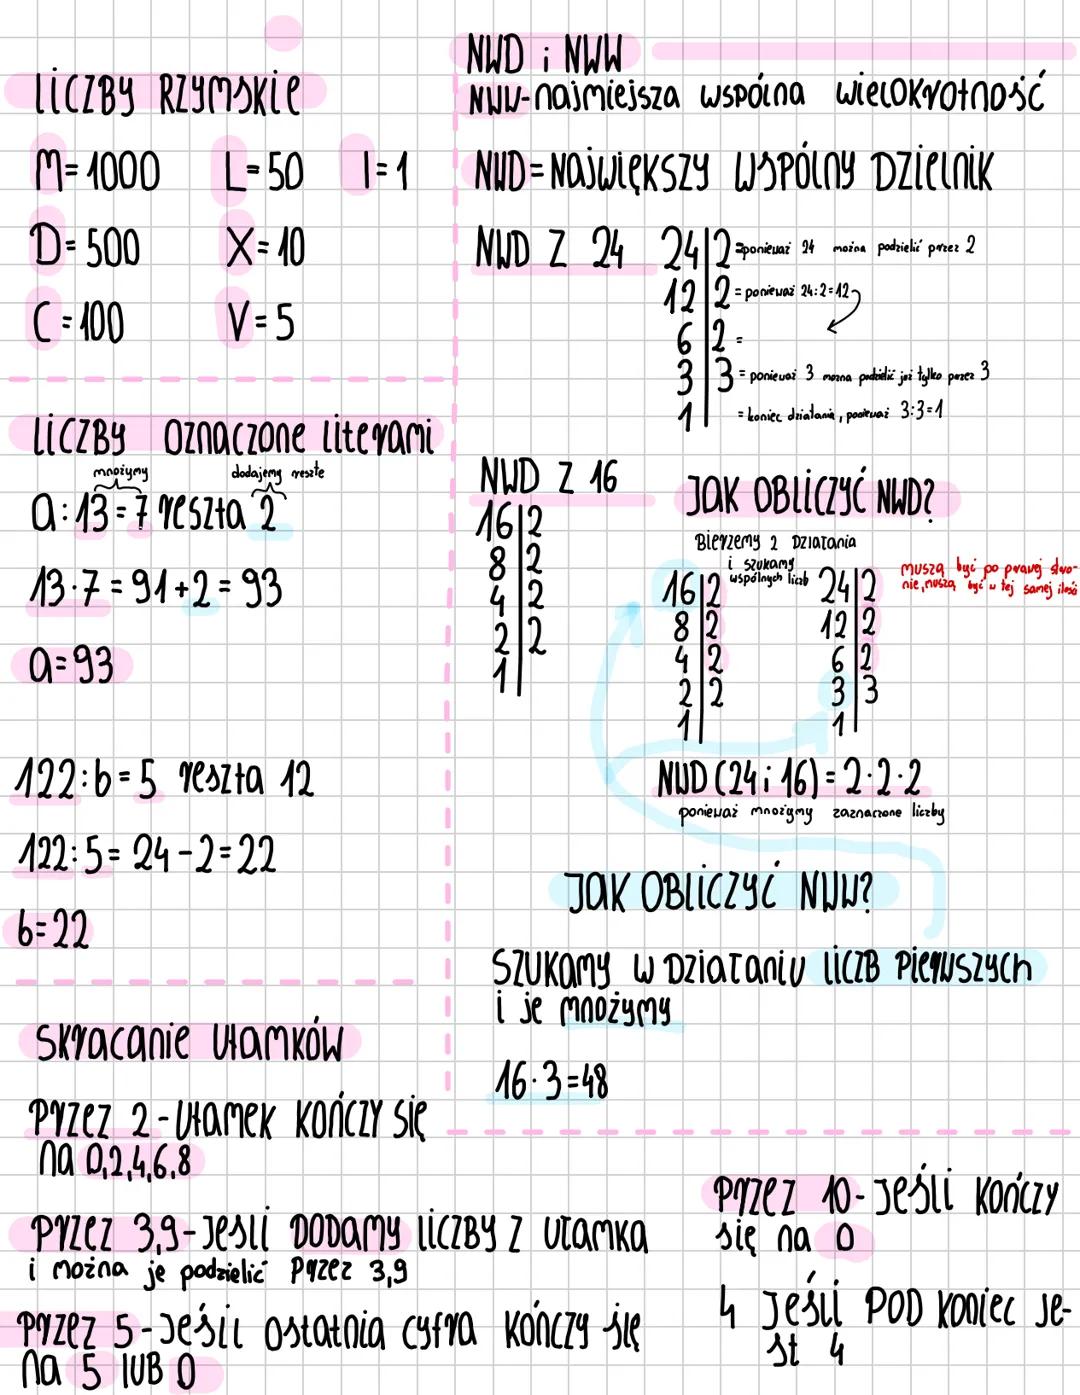 LICZBY RZYMSKIE
M=1000 L=50 I=1
D=500 X=10
C=100 V=5
LICZBY OZNACZONE LITERAMI
mnożymy dodajemy reszte
a:13=7 reszta 2
13·7=91+2=93
a=93
122:b=5 reszta 12
122:5=24-2=22
b=22
SKRACANIE UŁAMKÓW
PRZEZ 2-UŁAMEK KOŃCZY SIĘ
NA 0,2,4,6,8
PRZEZ 3,9-JEŚLI DODAMY LICZBY Z UŁAMKA
i można je podzielić przez 3,9
PRZEZ 5-JEŚLI OSTATNIA CYFRA KOŃCZY SIĘ
NA 5 LUB 0
NWD i NWW
NWW-najmiejsza wspólna wielokrotność
NWD=NAJWIĘKSZY WSPÓLNY DZIELNIK
NWD Z 24
24|2=ponieważ 24 można podzielić przez 2
12|2=ponieważ 24:2=12
6|2=
3|3=ponieważ 3 można podzielić już tylko przez 3
1| =koniec działania, ponieważ 3:3=1
NWD Z 16
16|2
8|2
4|2
2|2
1|
JAK OBLICZYĆ NWD?
Bierzemy 2 DZIAŁANIA
i szukamy
wspólnych liczb
muszą być po prawej stro-
nie, muszą być w tej samej ilości
16|2 24|2
8|2 12|2
4|2 6|2
2|2 3|3
1| 1|
NWD (24 i 16)=2·2·2
ponieważ mnożymy zaznaczone liczby
JAK OBLICZYĆ NWW?
SZUKAMY W DZIAŁANIU LICZB PIERWSZYCH
i je mnożymy
16·3=48
PRZEZ 10-JEŚLI KOŃCZY
się na 0
4 JEŚLI POD KONIEC JE-
ST 4